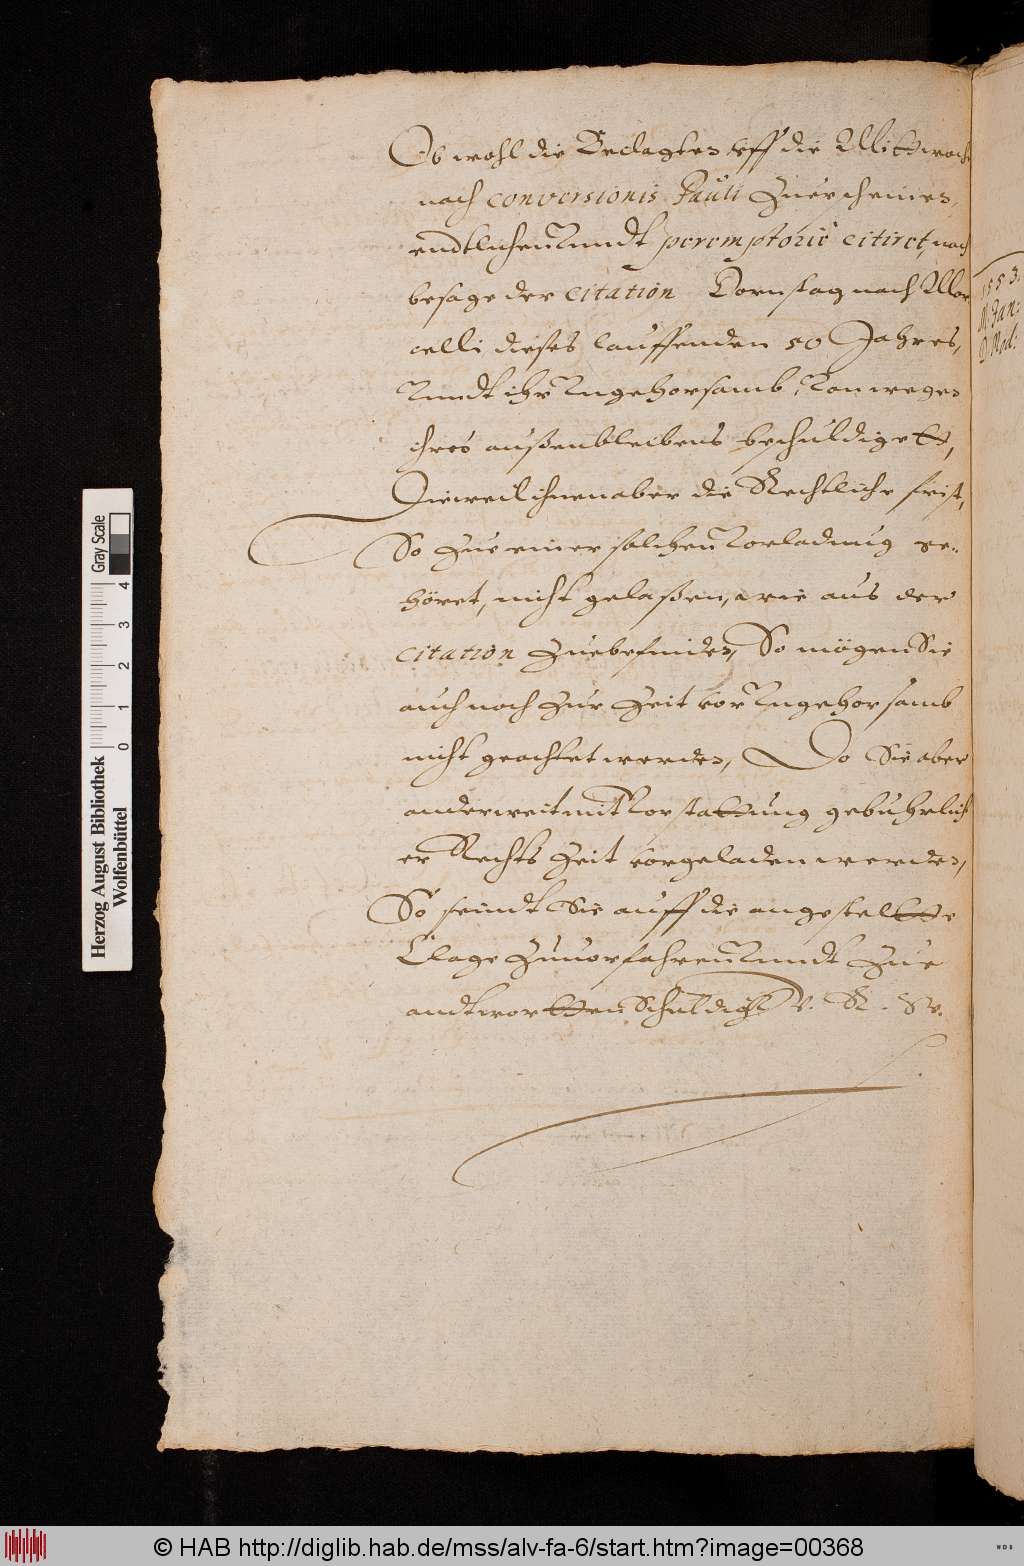 Ob wohl die Beclagten uff die Mittwoche
nach conversionis Pauli zuerscheinen,
endtlichen Vnndt peremptorie citiret, nach
besage der citation Dornstag nach Mar
celli dieses lauffenden 50 Jahres,
Vnndt ihr Vngehorsamb, Von wegen
ihres außenbleibens beschuldigett,
Dieweil ihnen aber die Rechtliche frist,
So zue einer solchen Vorladung ge-
höret, nicht gelaßen, wie aus der
citation zuebefinden, So mögen Sie
auch noch zur Zeit vor Vngehorsamb
nicht geachtet werden, Do Sie aber
anderweit mit Vorstattung gebuhrlich
er Rechts Zeit vorgeladen werden,
So seindt Sie auff die angestellte
Clage Zuuorfahren Vnndt Zue
andtwortten Schuldig V. R. W.
1553.
M Jan:
D Rad:
Herzog August Bibliothek
Wolfenbüttel
0 1 2 3 4
Gray Scale
© HAB http://diglib.hab.de/mss/alv-fa-6/start.htm?image=00368
WDB